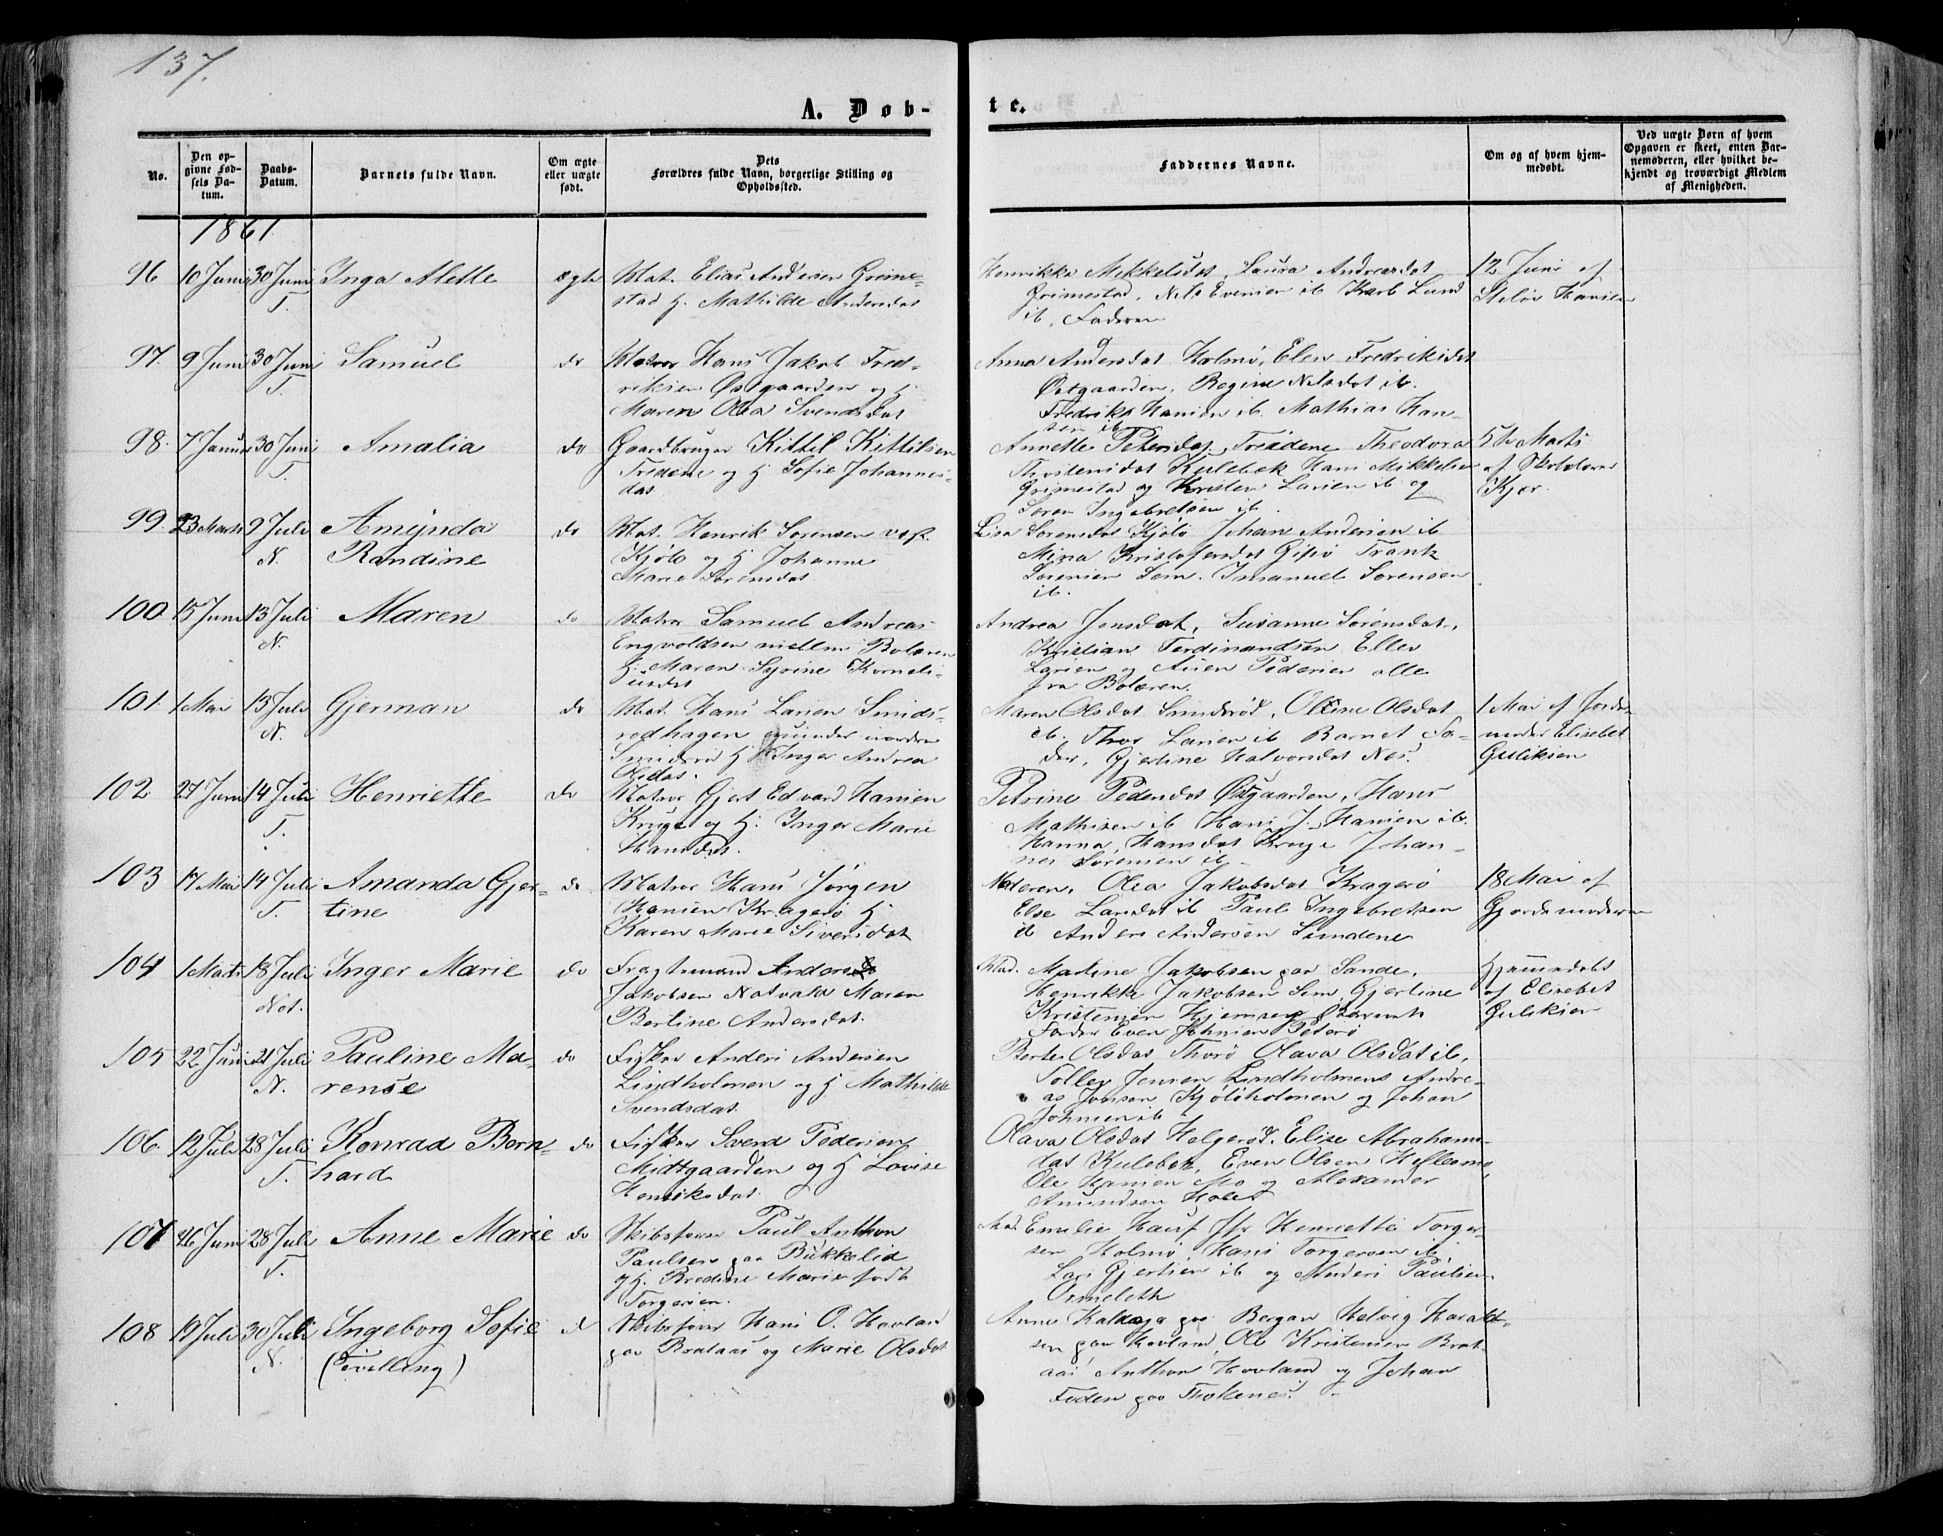 137.
A. Døb-
te.
No.
Den op-
givne Fød-
sels Da-
tum.
Daabs-
Datum.
Barnets fulde Navn.
Om ægte
eller uægte
født.
Dets
Forældres fulde Navn, borgerlige Stilling og
Opholdssted.
Faddernes Navne.
Om og af hvem hjem-
medøbt.
Ved uægte Børn af hvem
Opgaven er skeet, enten Bar-
nemoderen, eller hvilket be-
kjendt og troværdigt Medlem
af Menigheden.
1861
96 10 Juni 30 Juni T. Inga Alette ægte Mat. Elias Andersen Grime-
stad H. Mathilde Andersdat
Henrikke Mikkelsdat, Laura Andreasdat
Grimestad, Nils Evensen ib Karl Lund
ib, Faderen
12 Juni af
Hansen
97. 9 Juni 30 Juni T. Samuel do Matros Hans Jakob Fred-
riksen Østgaarden og H.
Maren Olea Svendsdat
Anna Andersdat Holmø, Elen Fredriksdat
Østgaarden, Regine Nilsdat ib.
Fredrik Hansen ib. Mathias Han-
sen ib
98. 7 Januar 30 Juni T. Amalia do Gaardbruger Kittil Kittilsen
Tredene og H. Sofie Johannes-
dat
Annette Petersdat, Tredene Theodora
Thorstensdat Kulebek Hans Mikkelsen
Grimestad og Kristen Larsen ib og
Søren Ingebretsen ib.
5te Marts
af
Kjær.
99. 23 Marts 9 Juli N. Amynda
Randine
do Mat. Henrik Sørensen
Kjøle og H Johanne
Marie Sørensdat.
Lisa Sørensdat Kjøle Johan Andersen ib
Mina Kristofersdat Frantz
Sørensen Sem. Imanuel Sørensen
ib.
100. 15 Juni 13 Juli N. Maren do Matros Samuel Andreas
Engvoldsen mellem Bolæren
H. Maren Syrine Korneli-
usdat
Andrea Jensdat, Susanne Sørensdat,
Kristian Ferdinandsen Ellev
Larsen og Pedersen alle
fra Bolæren.
101. 1 Mai 13 Juli N. Gjerman do Mat. Hans Larsen Smids-
rødhagen under nordre
Smidsrød H. Inger Andrea
Maren Olsdat Smidsrød, Oline Olsdat
ib. Thor Larsen ib Barnet Fa-
der, Gjertine Halvorsdat Nes.
1 Mai af Jorde-
moder Elisebet
Guliksen
102. 27 Juni 14 Juli T. Henriette do Matros Gjert Edvard Hansen
Kruge og H. Inger Marie
Hansdat.
Petrine Pedersdat Østgaarden, Hans
Mathisen ib Hans J. Hansen ib.
Hanna Hansdat Kruge Johan-
nes Sørensen ib
103 17 Mai 14 Juli T. Amanda Gjer-
tine
do. Matros Hans Jørgen
Hansen Kragerø H
Karen Marie Siversdat
Moderen, Olea Jakobsdat Kragerø
Else Larsdat ib Paul Ingebretsen
ib Anders Andersen Sundene
18 Mai af
Gjordemoderen
104 1 Marts 18 Juli Nøt. Inger Marie do Fragtmand Anders
Jakobsen Natvald Maren
Bertine Andersdat.
Mad. Martine Jakobsen paa Sande,
Henrikke Jakobsen Sem, Gjertine
Kristensen Hjemsen Barnets
Fader Even Johnsen Peterø
Hjemmedøbt
af Elisebet
Guliksen
105 22 Juni 21 Juli N. Pauline Ma-
rense
do Fisker Anders Andersen
Lindholmen og H Mathilde
Svendsdat.
Berte Olsdat, Thorø Olava Olsdat ib,
Tollev Jensen Lindholmens Andre-
as Jonsen Kjøleholmen og Johan
Johnsen ib
106. 12 Juli 28 Juli T. Konrad Bern-
hard
do Fisker Svend Pedersen
Midtgaarden og H Lovise
Henriksdat.
Olava Olsdat Helgerød, Elise Abrahams-
dat Kulebek, Even Olsen
Ole Hansen Mo og Alexander
Amundsen Holes
107 26 Juni 28 Juli T. Anne Marie do Skibsfører Paul Anthon
Paulsen paa Bukkelid
og H. Bredine Marie født
Torgersen.
Mad. Emelie Hauf Jfr Henriette Torger-
sen Holmø, Hans Torgersen ib,
Lars Gjertsen ib og Meideri Paulsen
Ormeleth
108 19 Juli 30 Juli N. Ingeborg Sofie
(Tvilling)
d Skibsfører Hans O. Hovland
paa Brataas og Marie Olsdat
Anne paa Bergan Helvig Harald-
sen paa Hovland, Ole Kristensen Brat-
aas Anthon Hovland og Johan
Feden paa Thokene.